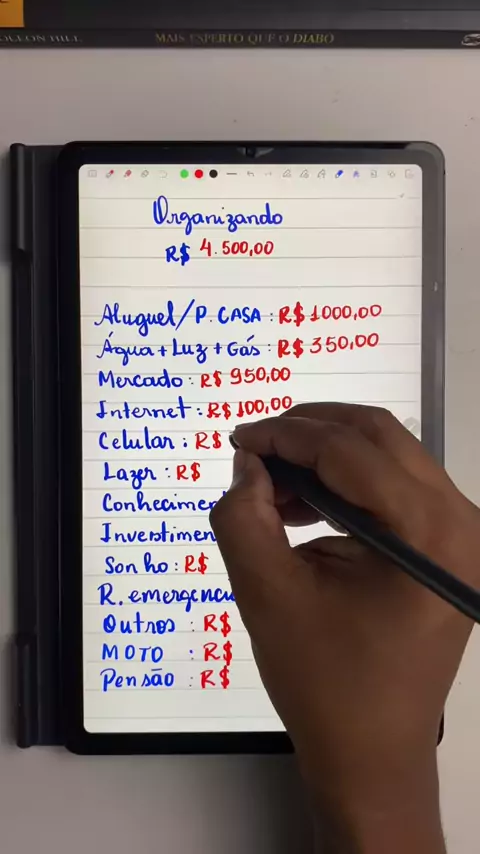 MAIS ESPERTO QUE O DIABO
Organizando
R$ 4.500,00
Aluguel/P. CASA : R$ 1000,00
Água + Luz + Gás : R$ 350,00
Mercado : R$ 950,00
Internet : R$ 100,00
Celular : R$
Lazer : R$
Conhecimen
Investimen
Sonho : R$
R. emergenci
Outros : R$
MOTO : R$
Pensão : R$